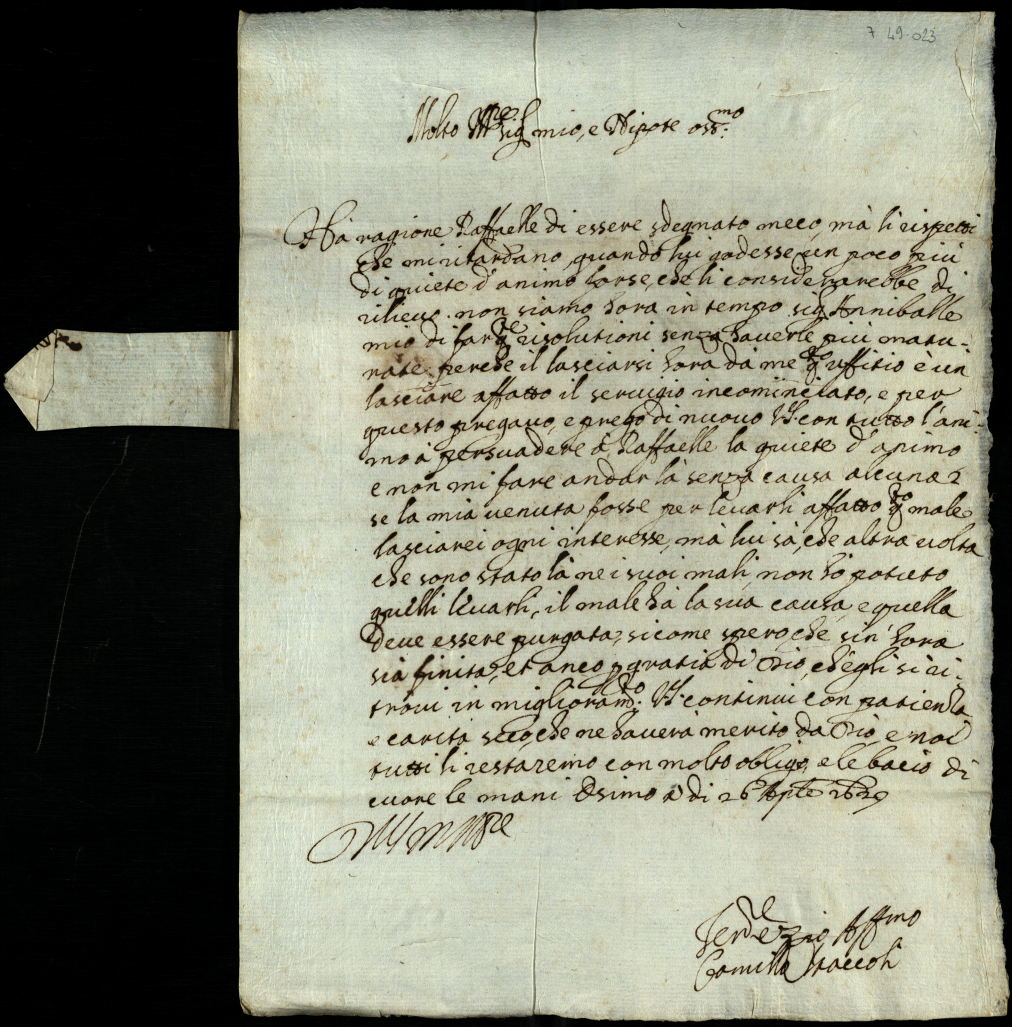 7 49-023
Molto Mag.re Sig.r mio, e Nipote oss.mo
Hà ragione Raffaelle di essere sdegnato meco, mà li rispetti
che mi ritardano, quando lui godesse un poco più
di quiete d'animo forse, che li considerarebbe di
rilievo. non siamo hora in tempo sig.r Anniballe
mio di far q.te risolutioni senza haverle più matu-
rate. perche il lasciarsi hora da me q.to uffitio è un
lasciare affatto il servigio incominciato, e per
questo pregavo, e prego di nuovo V.S. con tutto l'ani-
mo à persuadere à Raffaelle la quiete d'animo
e non mi fare andar là senza causa alcuna
se la mia venuta fosse per levarli affatto q.to male
lasciarei ogni interesse, mà lui sà, che altra volta
che sono stato là ne i suoi mali, non hò potuto
quelli levarli, il male hà la sua causa, e quella
deve essere purgata, sicome spero che sin' hora
sia finita, et anco p gratia di Dio, ch'egli si ri-
trovi in miglioram.to V.S. continui con patienza
e carità seco, che ne haverà merito da Dio, e noi
tutti li restaremo con molto obligo, e le bacio di
cuore le mani à di 26 1629
Di V.S. m Mag.re
Ser.re e Zio Aff.mo
Camillo Staccoli